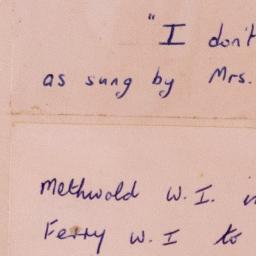 "I don't
as sung by Mrs.
Methwold W.I.
Ferry W.I to